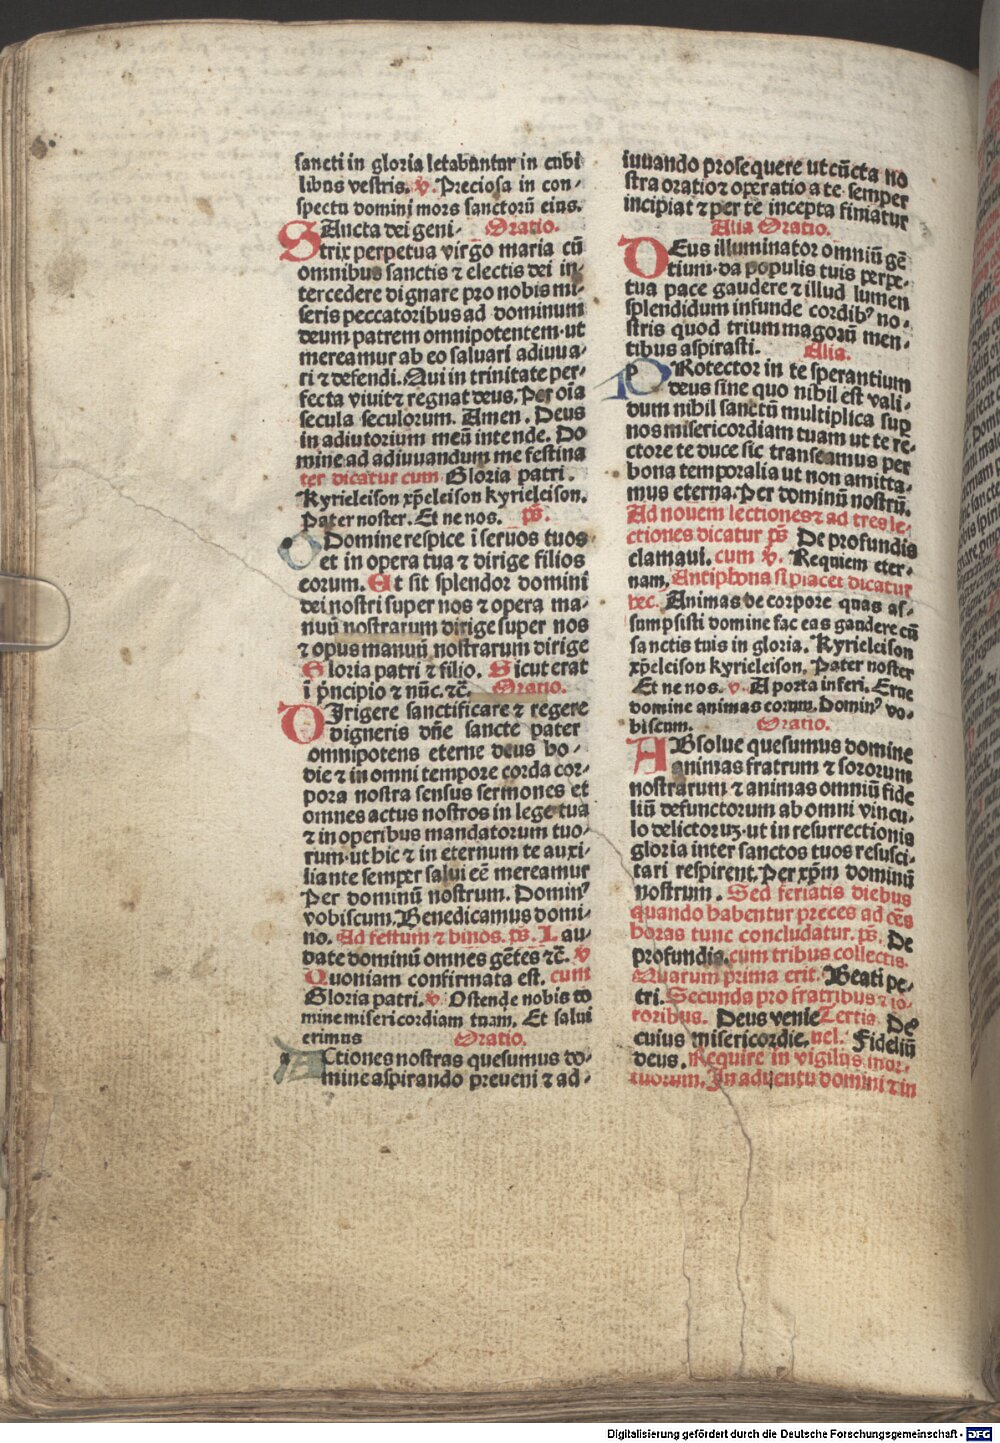 sancti in gloria letabuntur in cubi
libus vestris. v̄. Preciosa in con-
spectu domini mors sanctorū eius.
SAncta dei geni- Oratio.
trix perpetua virgo maria cū
omnibus sanctis ⁊ electis dei in-
tercedere dignare pro nobis mi-
seris peccatoribus ad dominum
deum patrem omnipotentem·ut
mereamur ab eo saluari adiuua-
ri ⁊ defendi. Qui in trinitate per-
fecta viuit ⁊ regnat deus. Per oīa
secula seculorum. Amen. Deus
in adiutorium meū intende. Do
mine ad adiuuandum me festina
ter dicatur cum Gloria patri.
Kyrieleison xp̄eleison kyrieleison.
Pater noster. Et ne nos. ps̄.
O Domine respice ī seruos tuos
et in opera tua ⁊ dirige filios
eorum. Et sit splendor domini
dei nostri super nos ⁊ opera ma-
nuū nostrarum dirige super nos
⁊ opus manuū nostrarum dirige
Gloria patri ⁊ filio. Sicut erat
ī p̄ncipio ⁊ nūc. ⁊c̄. Oratio.
DIrigere sanctificare ⁊ regere
digneris dn̄e sancte pater
omnipotens eterne deus ho-
die ⁊ in omni tempore corda cor-
pora nostra sensus sermones et
omnes actus nostros in lege tua
⁊ in operibus mandatorum tuo-
rum·ut hic ⁊ in eternum te auxi-
liante semper salui eē mereamur
Per dominū nostrum. Dominꝰ
vobiscum. Benedicamus domi-
no. Ad festum ⁊ binos. ps̄. Lau-
date dominū omnes gētes ⁊c̄. v̄
Quoniam confirmata est. cum
Gloria patri. v̄. Ostende nobis do
mine misericordiam tuam. Et salui
erimus Oratio.
ACtiones nostras quesumus do-
mine aspirando preueni ⁊ ad-
iuuando prosequere ut cūcta no
stra oratio ⁊ operatio a te semper
incipiat ⁊ per te incepta finiatur
Alia Oratio.
DEus illuminator omniū gē
tium·da populis tuis perpe-
tua pace gaudere ⁊ illud lumen
splendidum infunde cordibꝰ no-
stris quod trium magorū men-
tibus aspirasti. Alia.
PRotector in te sperantium
deus sine quo nihil est vali-
dum nihil sanctū multiplica sup
nos misericordiam tuam ut te re-
ctore te duce sic transeamus per
bona temporalia ut non amitta-
mus eterna. Per dominū nostrū.
Ad nouem lectiones ⁊ ad tres le-
ctiones dicatur ps̄ De profundis
clamaui. cum v̄. Requiem eter-
nam. Antiphona si placet dicatur
hec. Animas de corpore quas as-
sumpsisti domine fac eas gaudere cū
sanctis tuis in gloria. Kyrieleison
xp̄eleison kyrieleison. Pater noster
Et ne nos. v̄. A porta inferi. Erue
domine animas eorum. Dominꝰ vo-
biscum. Oratio.
ABsolue quesumus domine
animas fratrum ⁊ sororum
nostrarum ⁊ animas omniū fide
liū defunctorum ab omni vincu-
lo delictoruꝫ·ut in resurrectionis
gloria inter sanctos tuos resusci-
tari respirent. Per xp̄m dominū
nostrum. Sed feriatis diebus
quando habentur preces ad oēs
horas tunc concludatur. ps̄. De
profundis. cum tribus collectis.
Quarum prima erit. Beati pe-
tri. Secunda pro fratribus ⁊ so-
roribus. Deus venie Tertia Deꝰ
cuius misericordie. vel. Fideliū
deus. Require in vigilijs mor-
tuorum. In aduentu domini ⁊ in
Digitalisierung gefördert durch die Deutsche Forschungsgemeinschaft - DFG